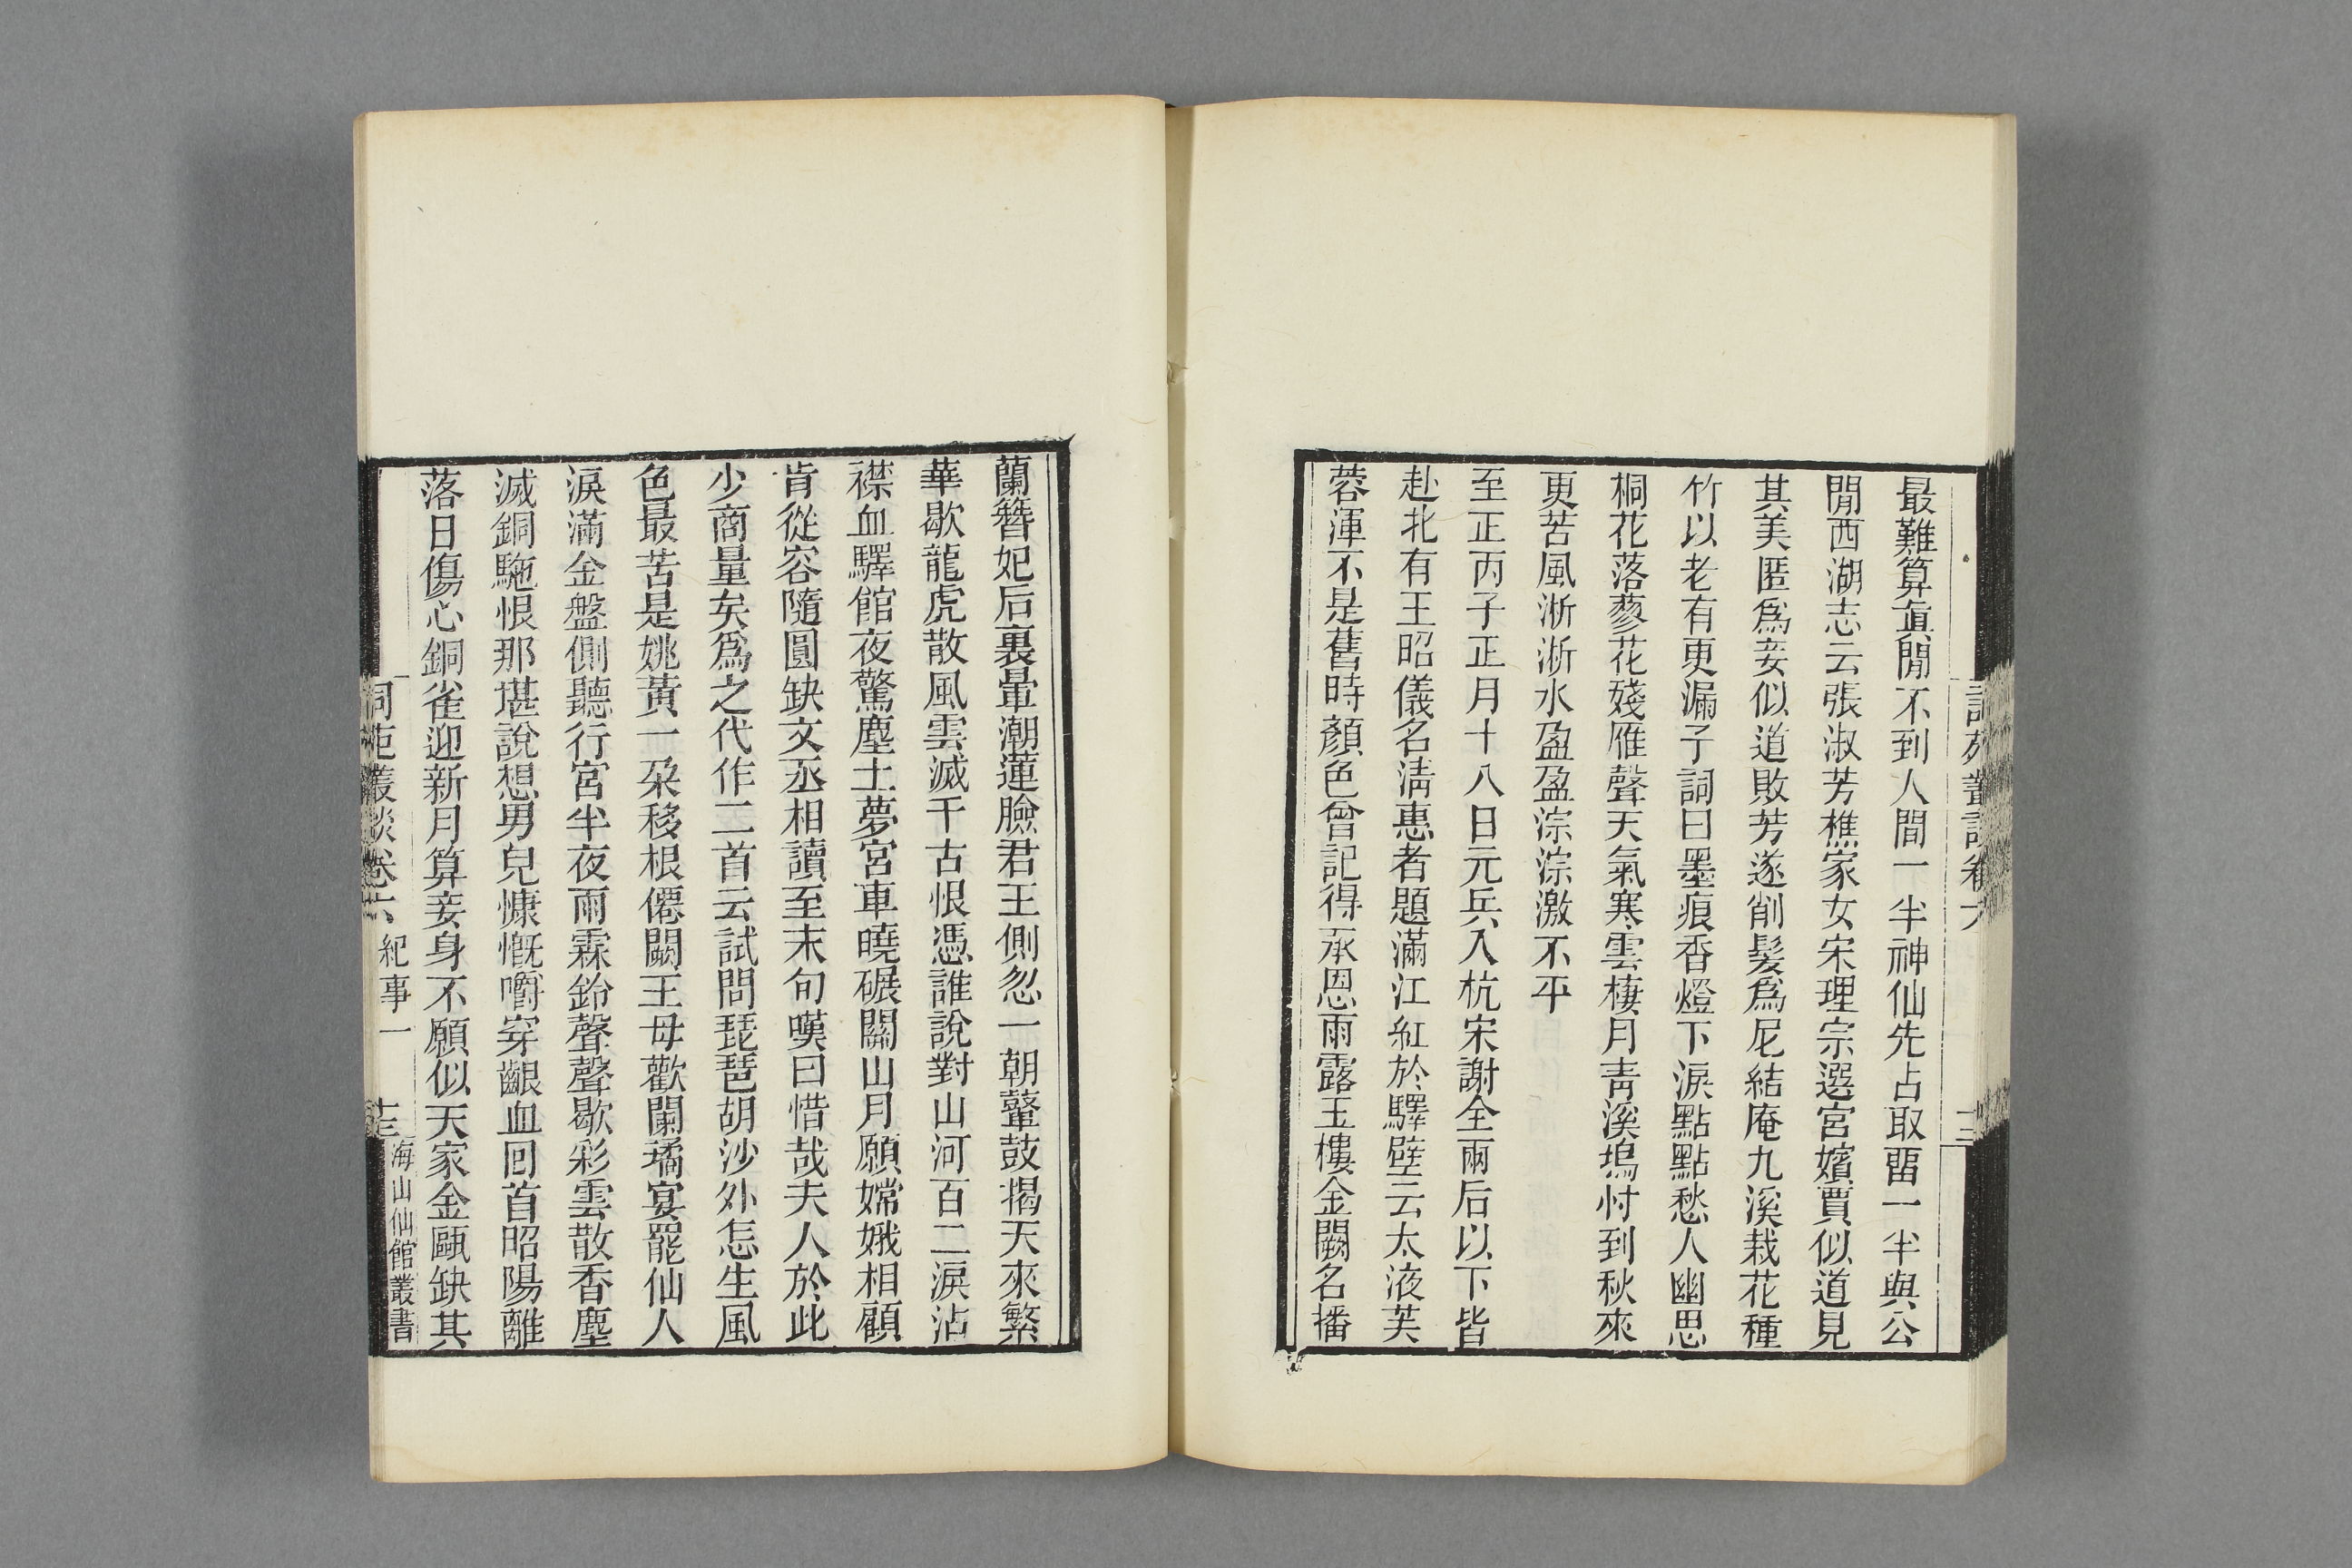 最難算眞閒不到人間一半神仙先占取畱一半與公
閒西湖志云張淑芳樵家女宋理宗選宮嬪賈似道見
其美匿爲妾似道敗芳遂削髮爲尼結庵九溪栽花種
竹以老有更漏子詞曰墨痕香燈下淚點點愁人幽思
桐花落蓼花殘雁聲天氣寒雲棲月靑溪塢忖到秋來
更苦風淅淅水盈盈淙淙激不平
至正丙子正月十八日元兵入杭宋謝全兩后以下皆
赴北有王昭儀名淸惠者題滿江紅於驛壁云太液芙
蓉渾不是舊時顏色曾記得承恩雨露玉樓金闕名播
蘭簪妃后裏暈潮蓮臉君王側忽一朝鼙鼓揭天來繁
華歇龍虎散風雲滅千古恨憑誰說對山河百二淚沾
襟血驛館夜驚塵土夢宮車曉碾關山月願嫦娥相顧
肯從容隨圓缺文丞相讀至末句嘆曰惜哉夫人於此
少商量矣爲之代作二首云試問琵琶胡沙外怎生風
色最苦是姚黃一朶移根僊闕王母歡闌璚宴罷仙人
淚滿金盤側聽行宮半夜雨霖鈴聲聲歇彩雲散香塵
滅銅駞恨那堪說想男兒慷慨嚼穿齦血回首昭陽離
落日傷心銅雀迎新月算妾身不願似天家金甌缺其
詞苑叢談卷六 紀事一 十三 海山仙館叢書